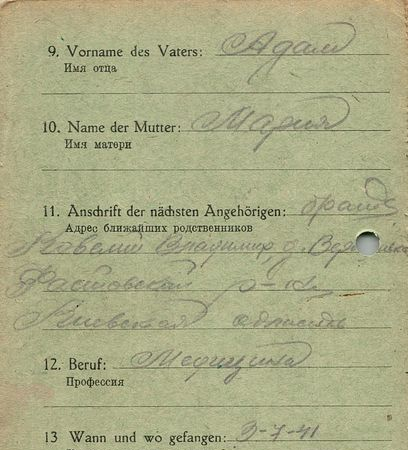 9. Vorname des Vaters: Адам
Имя отца
10. Name der Mutter: Мария
Имя матери
11. Anschrift der nächsten Angehörigen:
Адрес ближайших родственников
Владимир д.
Фастовский р-н
Киевская область
12. Beruf: Медицина
Профессия
13 Wann und wo gefangen: 3-7-41